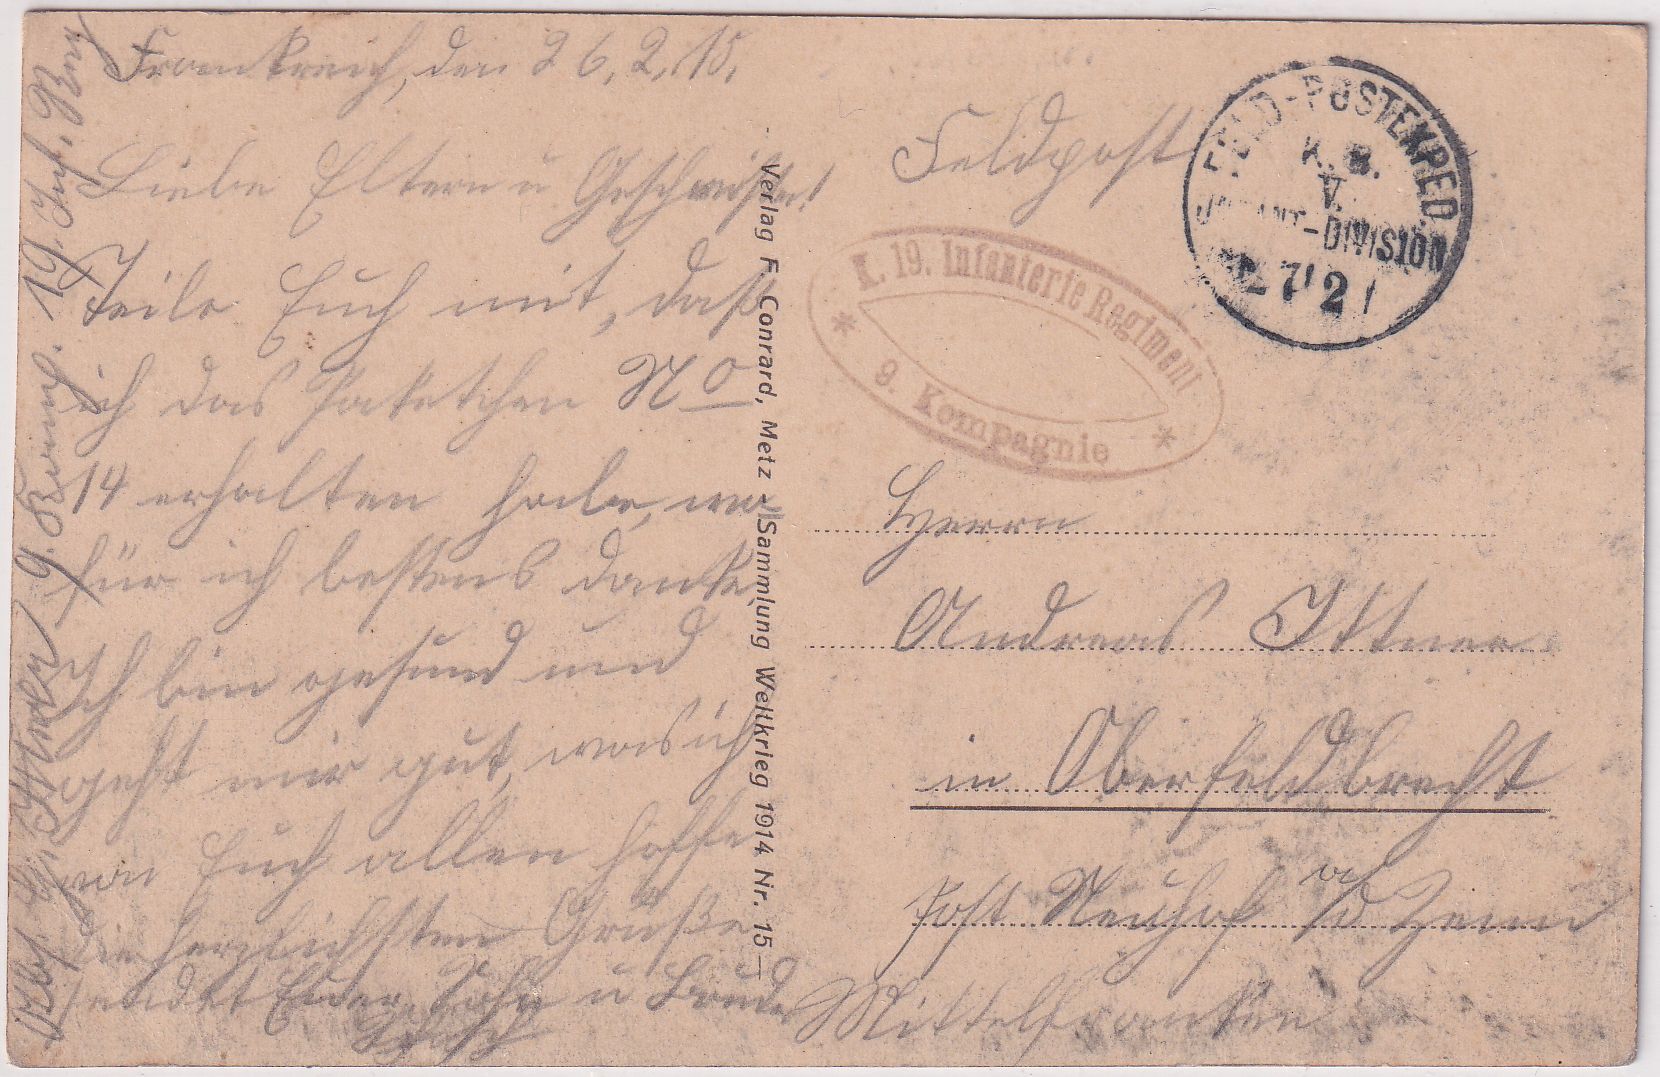 Frankreich, den 26.2.15.
Liebe Eltern u Geschwister!
Teile Euch mit, daß
ich das Paketchen No
14 erhalten habe, wo-
für ich bestens danke.
Ich bin gesund und
geht mir gut, was ich
von Euch allen hoffe
Die herzlichsten Grüße
sendet Euer Sohn u Bruder
Ittner 9. Komp. 19. Inf. Reg
Verlag F. Conrard, Metz - Sammlung Weltkrieg 1914 Nr. 15
Feldpost
FELD-POSTEXPED
K. B.
V.
INFANT-DIVISION
27 2
K. 19. Infanterie Regiment
* 9. Kompagnie *
Herrn
Andreas Ittner
in Oberfeldbrecht
Post Neuhof a/d Zenn
Mittelfranken